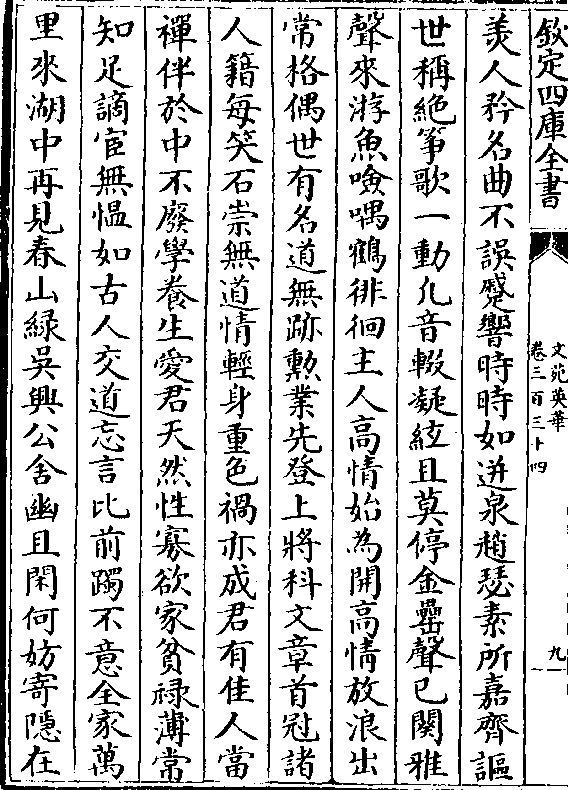 欽定四庫全書
文苑英華
卷三百三十四
九
羨人矜名曲不誤蹙響時時如迸泉趙瑟素所嘉齊謳
世稱絶筝歌一動凡音輟凝絃且莫停金罍聲已闋雅
聲來游魚噞喁鶴徘徊主人高情始為開高情放浪出
常格偶世有名道無跡勲業先登上將科文章首冠諸
人籍每笑石崇無道情輕身重色禍亦成君有佳人當
禪伴於中不廢學養生愛君天然性寡欲家貧禄薄常
知足謫宦無愠如古人交道忘言比前躅不意全家萬
里來湖中再見春山緑吳興公舍幽且閑何妨寄隱在